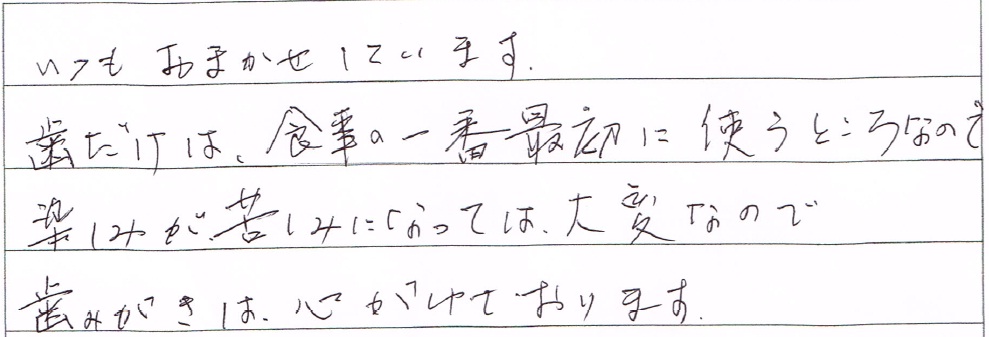 いつもおまかせしています.
歯だけは、食事の一番最初に使うところなので
楽しみが、苦しみになっては、大変なので
歯みがきは、心がけております.